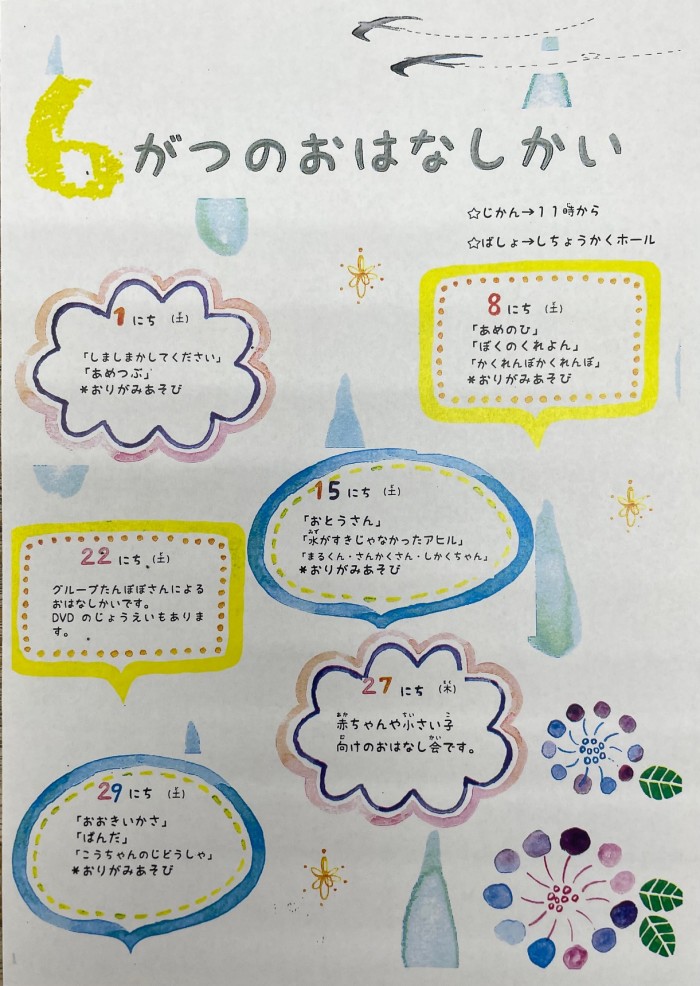 6がつのおはなしかい
☆じかん→11時から
☆ばしょ→しちょうかくホール
1にち (土)
「しましまかしてください」
「あめつぶ」
*おりがみあそび
8にち (土)
「あめのひ」
「ぼくのくれよん」
「かくれんぼかくれんぼ」
*おりがみあそび
15にち (土)
「おとうさん」
「水がすきじゃなかったアヒル」
「まるくん・さんかくさん・しかくちゃん」
*おりがみあそび
22にち (土)
グループたんぽぽさんによる
おはなしかいです。
DVDのじょうえいもありま
す。
27にち (木)
赤ちゃんや小さい子
向けのおはなし会です。
29にち (土)
「おおきいかさ」
「ぱんだ」
「こうちゃんのじどうしゃ」
*おりがみあそび